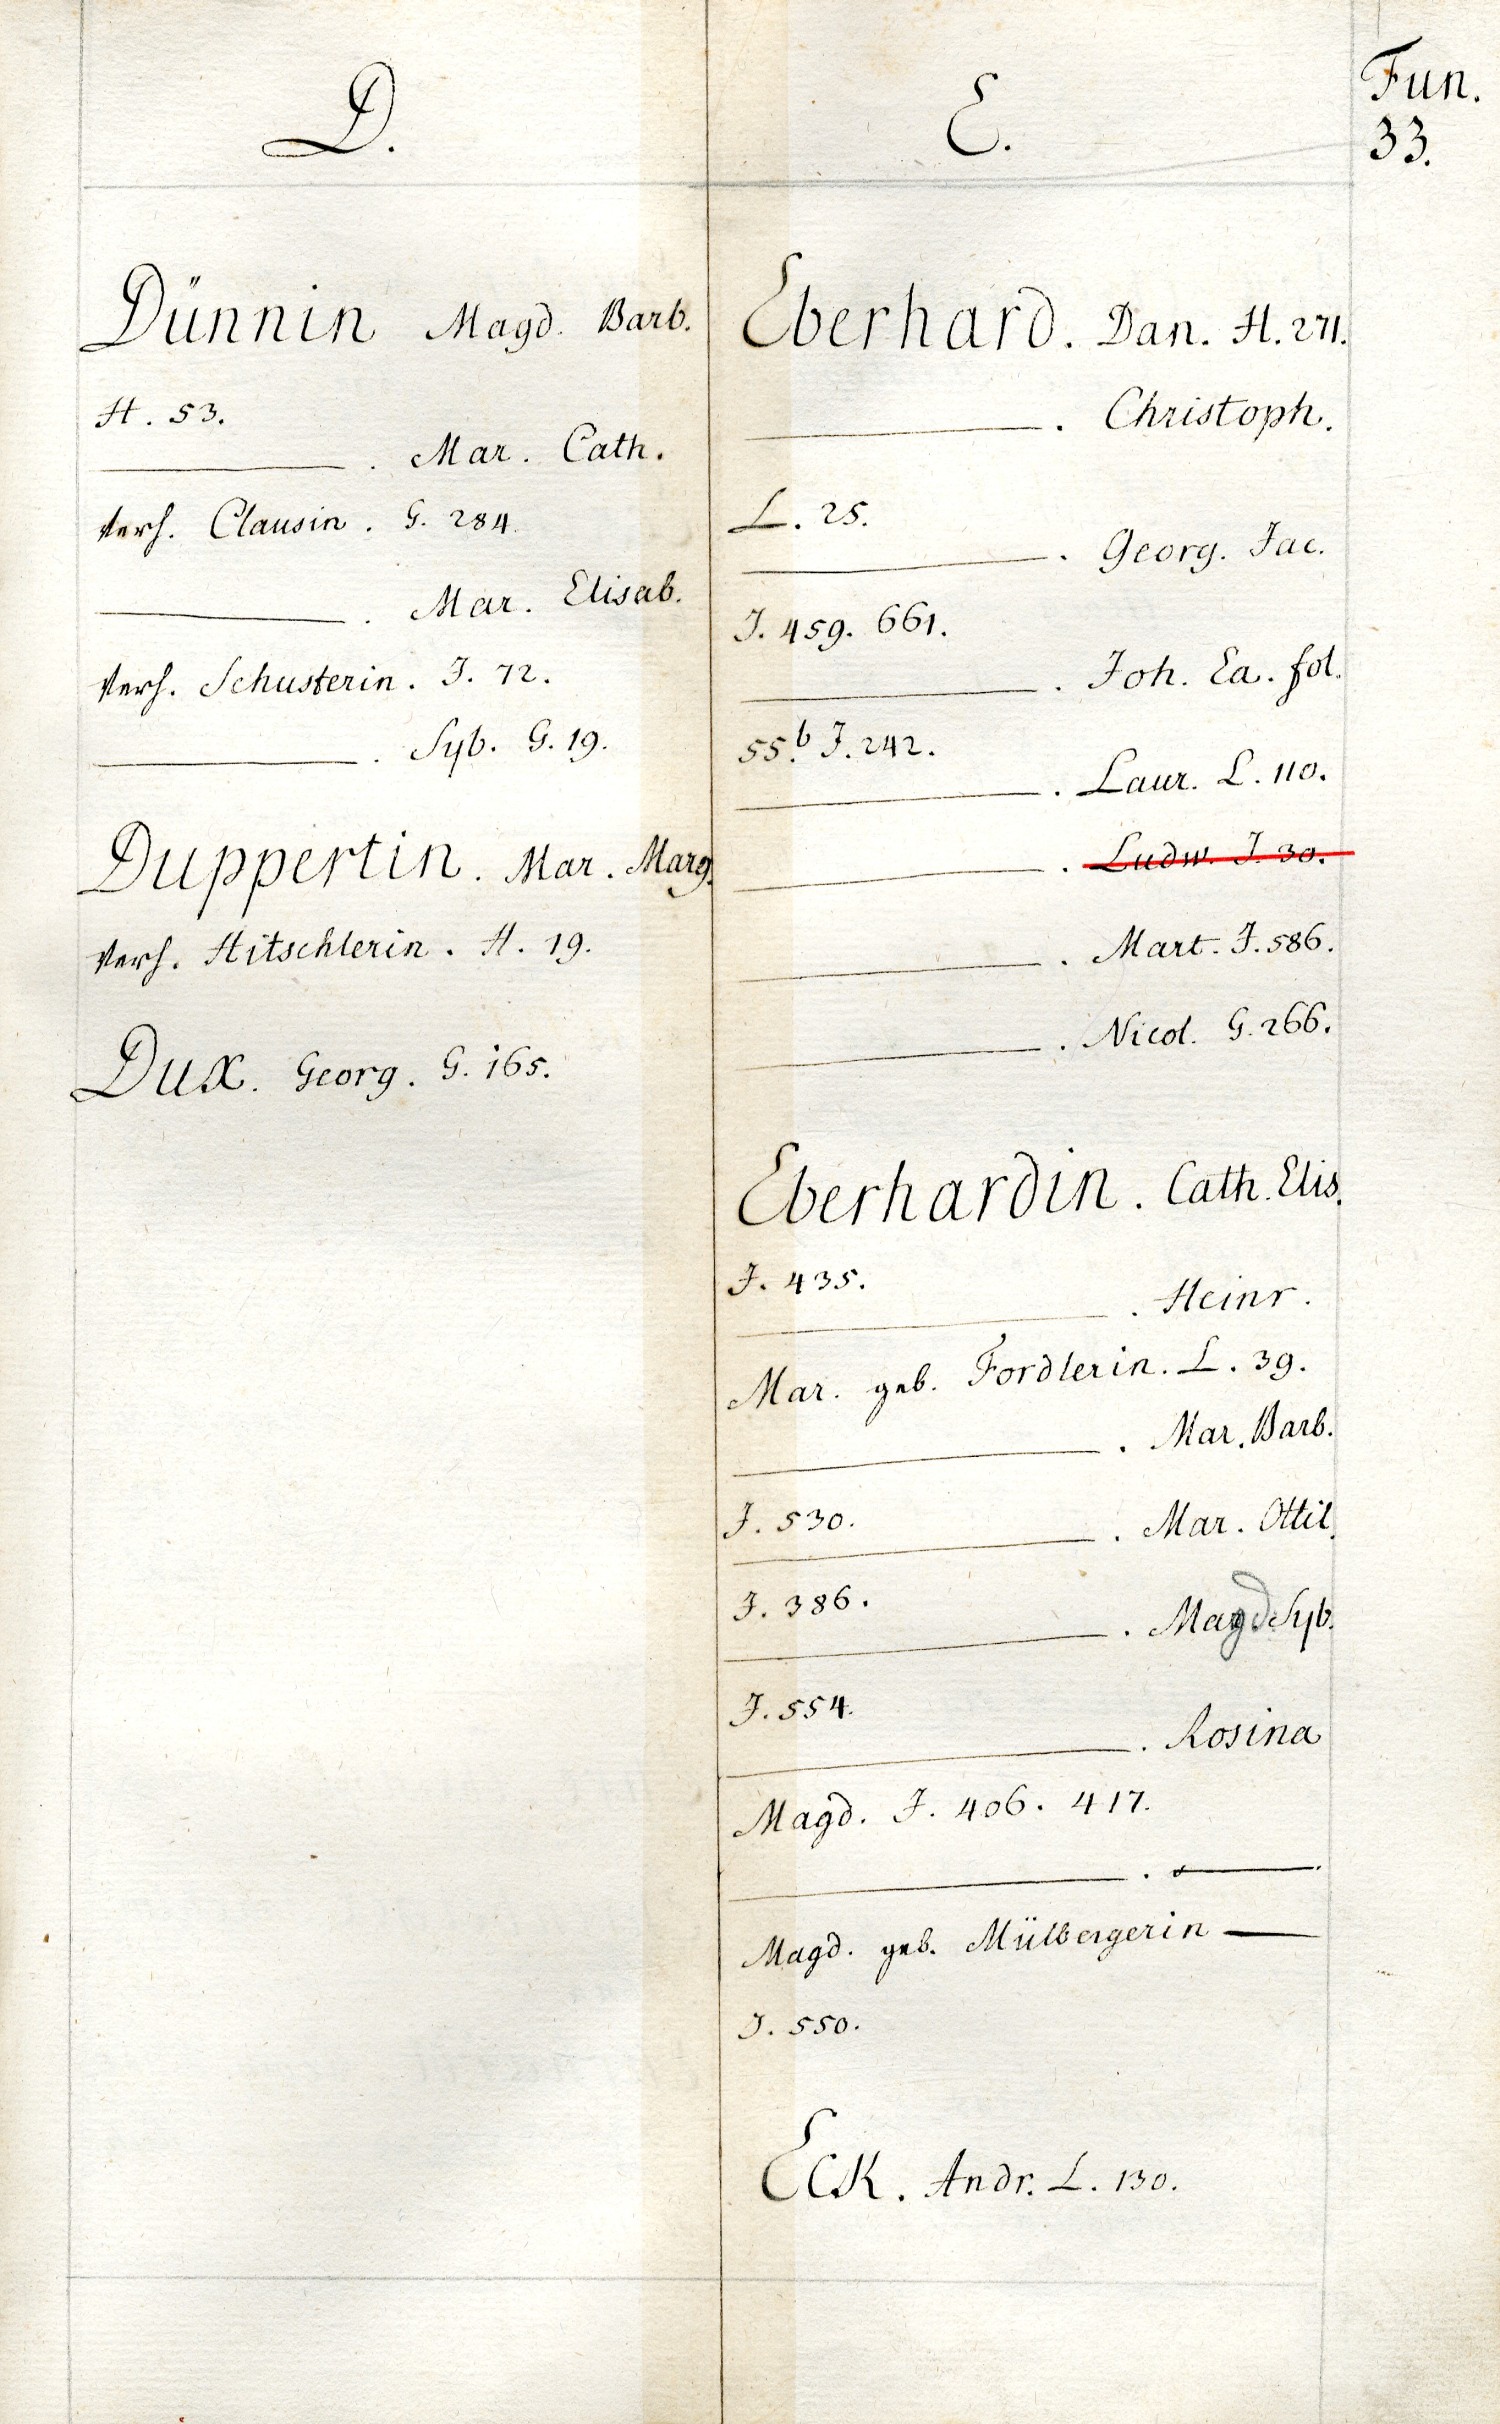 Fun.
33.
D.
Dünnin Magd. Barb.
H. 53.
———. Mar. Cath.
verh. Clausin. G. 284.
———. Mar. Elisab.
verh. Schusterin. J. 72.
———. Syb. G. 19.
Duppertin. Mar. Marg.
verh. Hitschlerin. H. 19.
Dux. Georg. G. 165.
E.
Eberhard. Dan. H. 271.
———. Christoph.
L. 25.
———. Georg. Jac.
J. 459. 661.
———. Joh. Ea. fol.
55.b J. 242.
———. Laur. L. 110.
———. Ludw. J. 30.
———. Mart. J. 586.
———. Nicol. G. 266.
Eberhardin. Cath. Elis.
J. 435.
———. Heinr.
Mar. geb. Fordlerin. L. 39.
———. Mar. Barb.
J. 530.
———. Mar. Ottil.
J. 386.
———. Magd Syb.
J. 554.
———. Rosina
Magd. J. 406. 417.
———. ———.
Magd. geb. Mülbergerin —
J. 550.
Eck. Andr. L. 130.